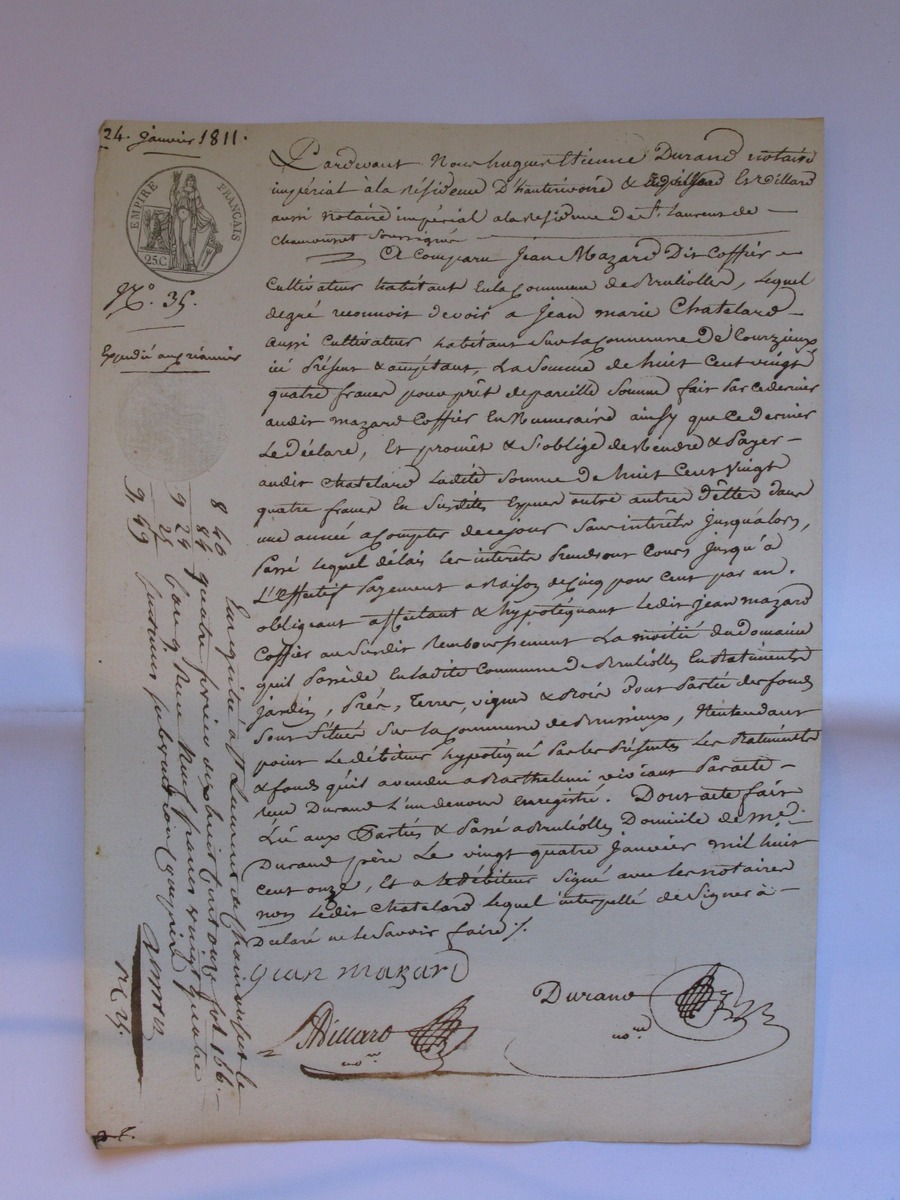 24. janvier 1811.
EMPIRE FRANÇAIS
25 C
N.º 35.
Expédié aux créancier
Pardevant Nous hugues Etienne Durand notaire
impérial à la résidence D'hauterivoire & Estdillard
aussi notaire impérial a la residence de St. Laurent de
chamousset soussignés
A Comparu Jean Mazard Dit Coffier
Cultivateur habitant En la Commune de Brulioles, lequel
de gré reconnoit devoir a Jean marie Chatelard
aussi Cultivateur habitant Sur la Commune de Courzieux
ici Présent & acceptant, La Somme de huit Cent vingt
quatre francs pour prêt de pareille Somme fait Par ce dernier
audit mazard Coffier En Numeraire ainsy que Ce dernier
Le Déclare, Et promêt & S'oblige de Rendre & Payer
audit Chatelard Ladite Somme de huit Cent Vingt
quatre francs En Susdites Especes outre autres dêttes dans
une année a Compter de ce jour Sans interêts Jusqu'alors,
Passé lequel délais les interêts Prendront Cours Jusqu'à
L'Effectif Payement a Raison de Cinq pour Cent par an.
obligeant affectant & hypotéquant Ledit jean mazard
Coffier au Susdit Remboursement La moitié du Domaine
qu'il Possède En Ladite Commune de Brulioles En Batiments
Jardin, Prés, Terres, vigne & Bois Dont Partie des fonds
Sont Situés Sur la Commune de Brussieux, N'entendant
point Le débiteur hypotéqué Par les Présentes Les Batiments
& fonds qu'il a vendu a Barthelemi viviant Par acte
reçu Durand L'un de nous Enregistré. Dont acte fait
Lu aux Parties & Passé a Brulioles Domicile de me.
Durand père Le vingt quatre Janvier mil huit
cent onze, Et a le débiteur Signé avec les notaires
non Ledit Chatelard Lequel interpellé de Signer à
Declaré ne le Savoir faire ./.
jean mazard
Durand
no.re
Dillard
no.re
8 40
84
9 24
25
9,49
Enregistré à St Laurent de Chamousset le
quatre fevrier dix huit cent onze fol 166.
Reçu Neuf francs vingt quatre
centimes subvention comprise